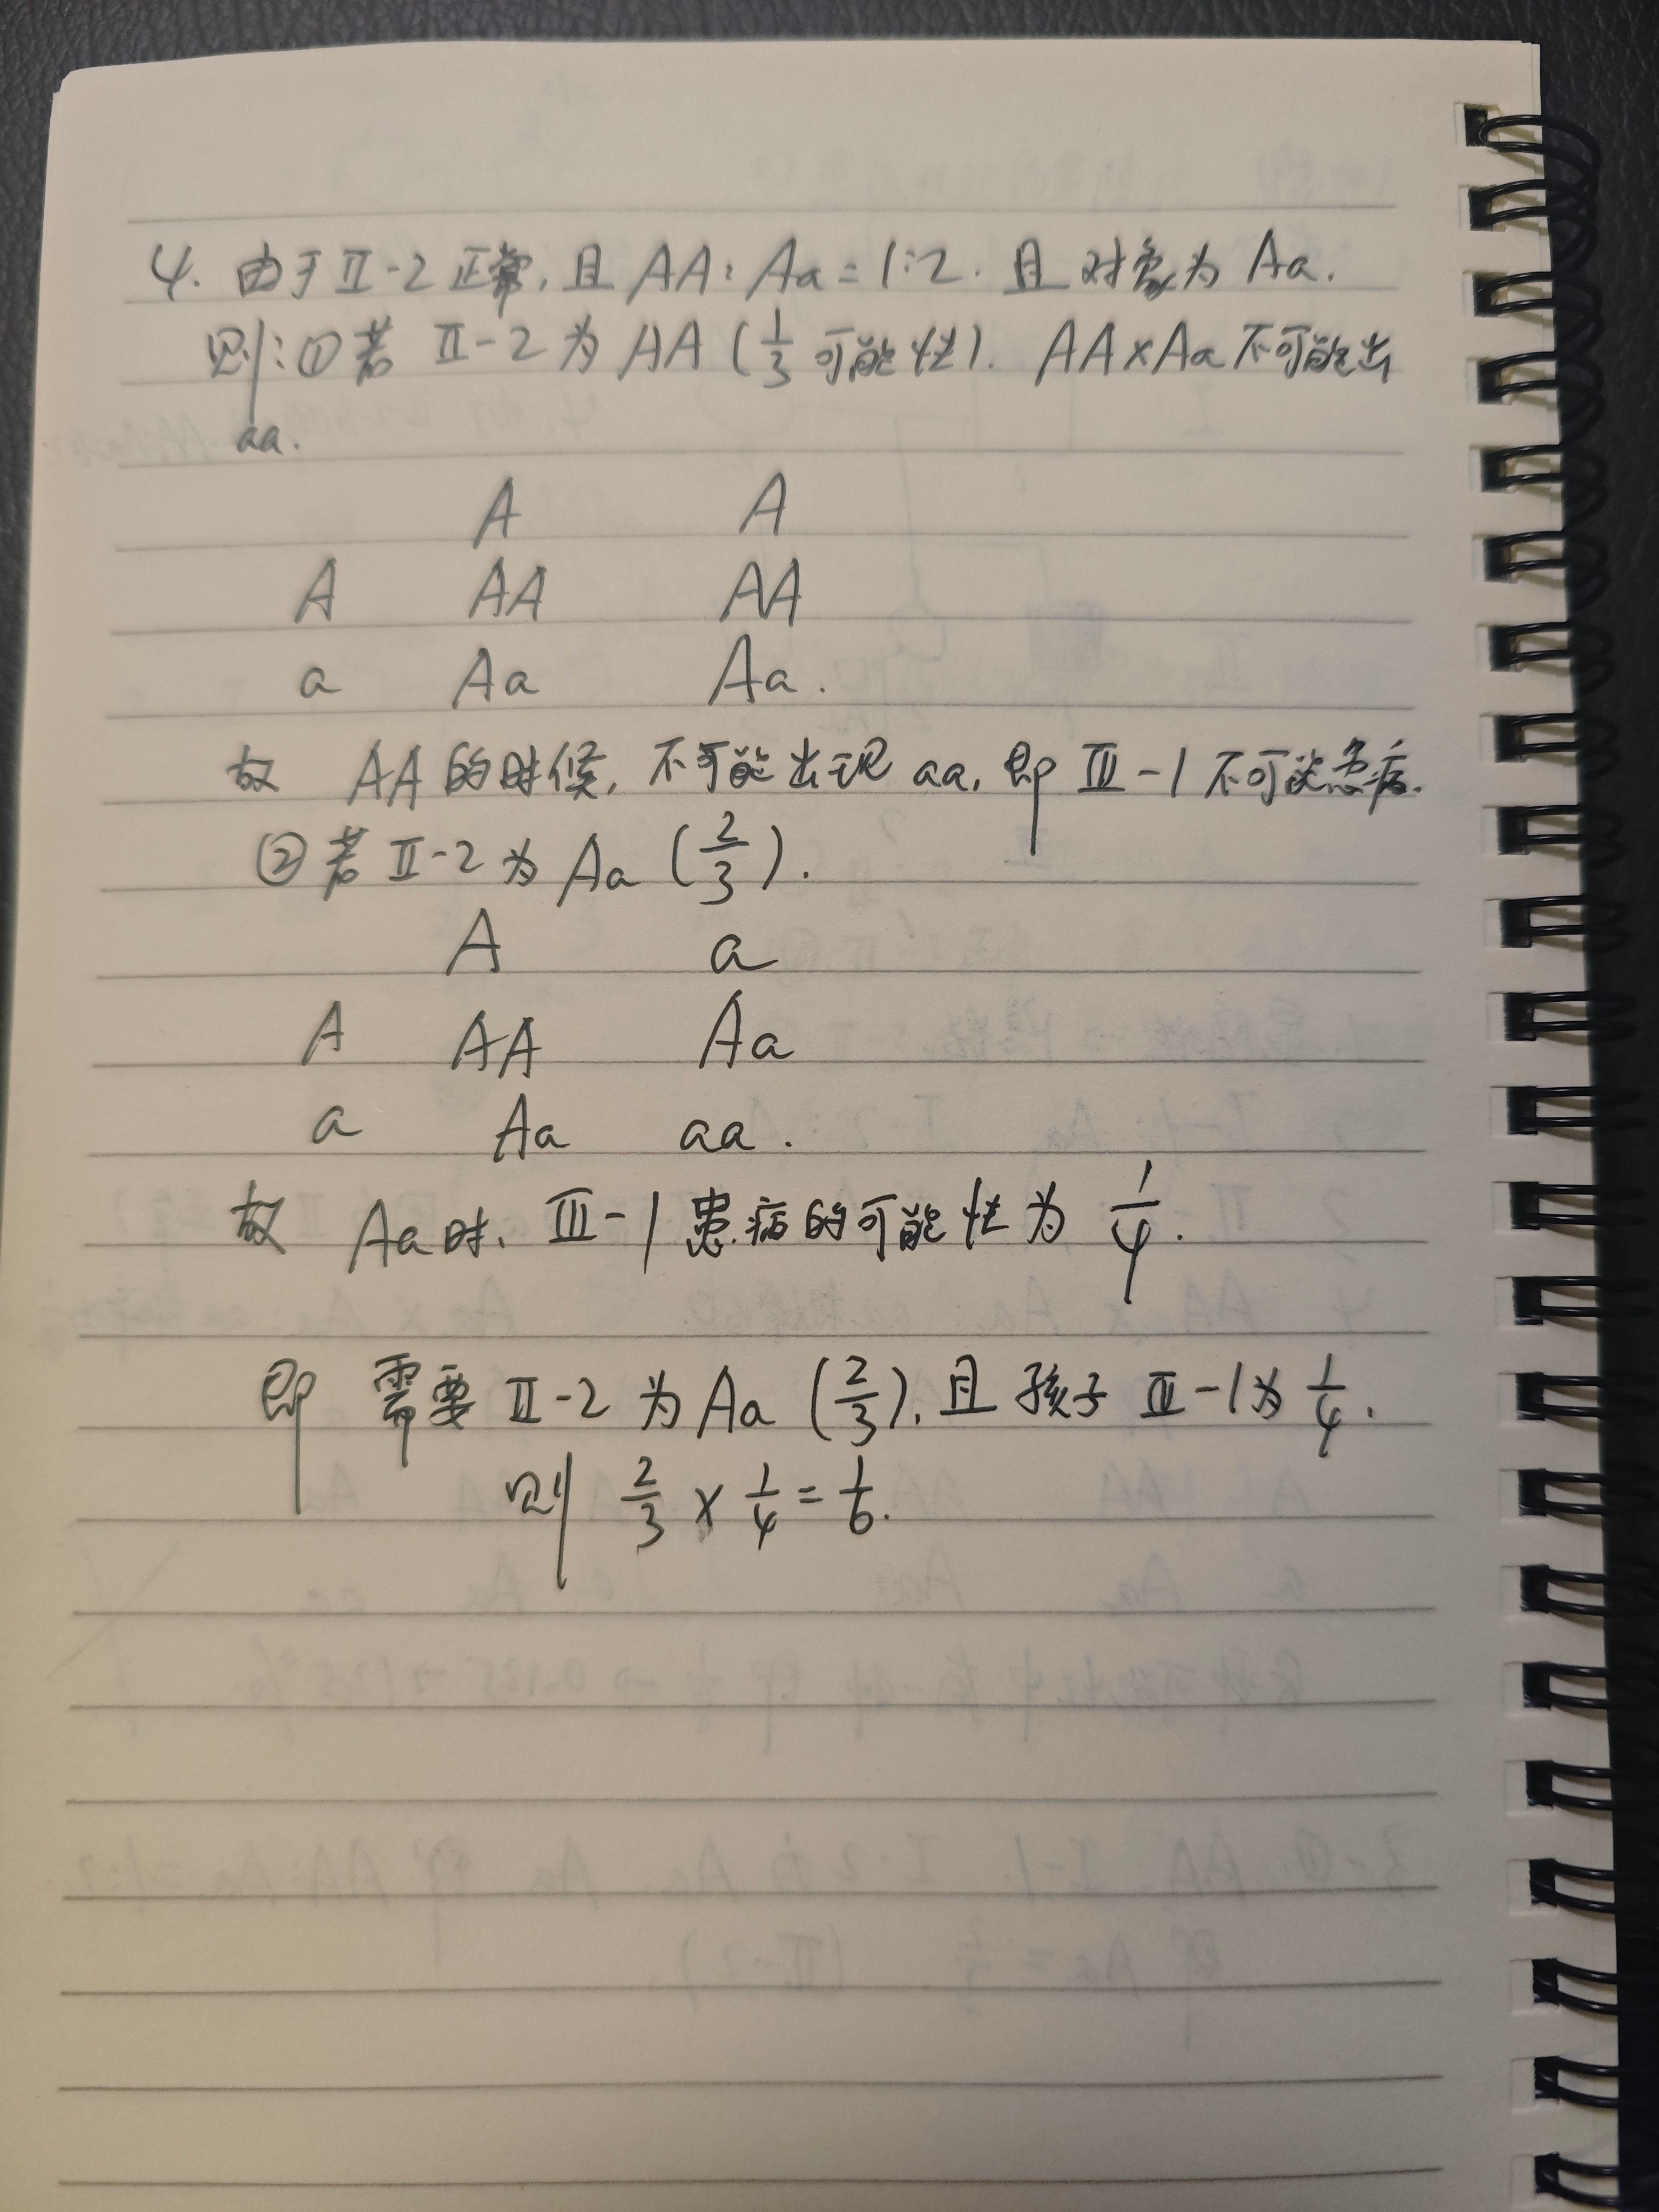 4. 由于Ⅱ-2正常,且AA:Aa=1:2.且对象为Aa.
则:①若Ⅱ-2为AA(1/3可能性).AA×Aa不可能出
aa.
A A
A AA AA
a Aa Aa.
故 AA的时候,不可能出现aa,即Ⅲ-1不可能患病.
②若Ⅱ-2为Aa(2/3).
A a
A AA Aa
a Aa aa.
故 Aa时、Ⅲ-1患病的可能性为1/4.
即需要Ⅱ-2为Aa(2/3),且孩子Ⅲ-1为1/4.
则 2/3×1/4=1/6.